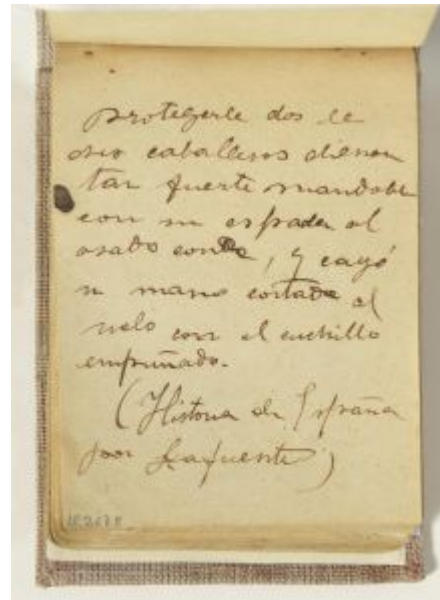 protegerle dos de
sus caballeros dieron
tan fuerte mandoble
con su espada al
osado conde, y cayó
su mano cortada al
suelo con el cuchillo
empuñado.
(Historia de España
por Lafuente)